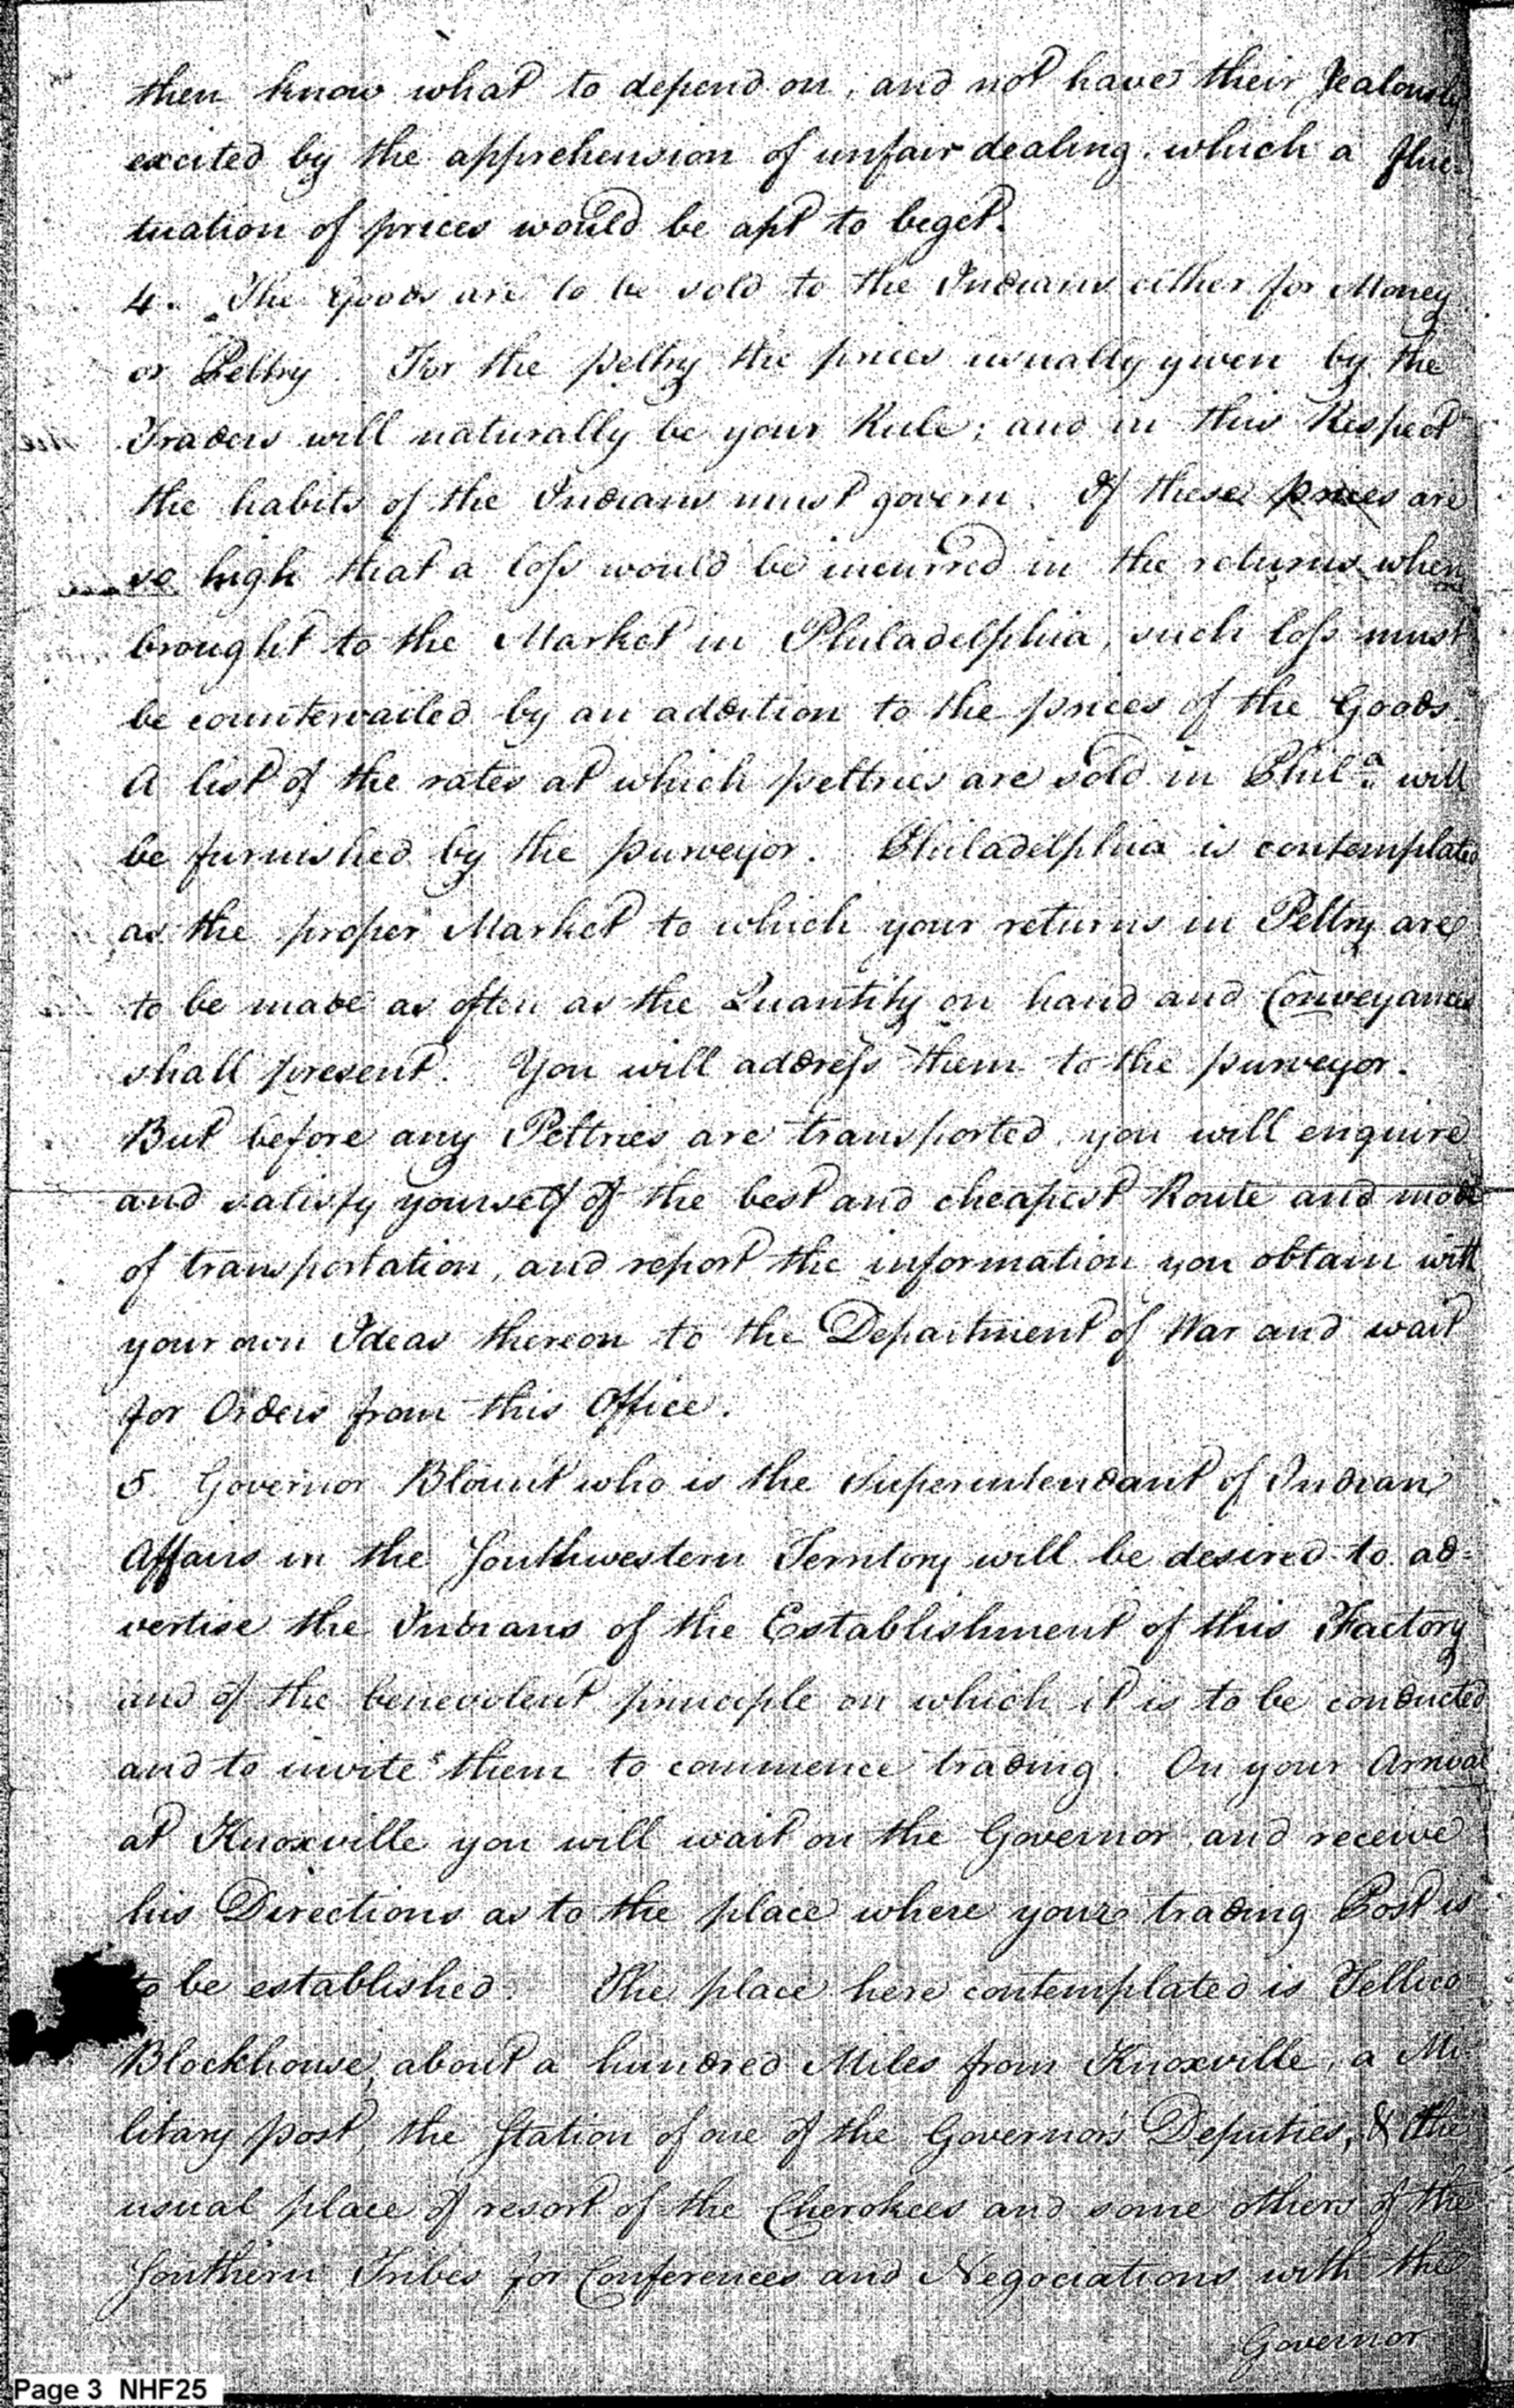 then know what to depend on, and not have their Jealousy
excited by the apprehension of unfair dealing, which a fluc-
tuation of prices would be apt to beget.
4. The Goods are to be sold to the Indians either for Money
or Peltry. For the peltry the prices usually given by the
Traders will naturally be your Rule; and in this Respect
the habits of the Indians must govern. If these prices are
so high that a loss would be incurred in the returns when
brought to the Market in Philadelphia, such loss must
be countervailed by an addition to the prices of the Goods.
A list of the rates at which peltries are sold in Phila. will
be furnished by the purveyor. Philadelphia is contemplated
as the proper Market to which your returns in Peltry are
to be made as often as the Quantity on hand and Conveyances
shall present. You will address them to the purveyor.
But before any Peltries are transported, you will enquire
and satisfy yourself of the best and cheapest Route and mode
of transportation, and report the information you obtain with
your own Ideas thereon to the Department of War and wait
for Orders from this Office.
5. Governor Blount who is the Superintendant of Indian
Affairs in the Southwestern Territory will be desired to ad=
vertise the Indians of the Establishment of this Factory
and of the benevolent principle on which it is to be conducted
and to invite them to commence trading. On your Arrival
at Knoxville you will wait on the Governor and receive
his Directions as to the place where your trading Post is
to be established. The place here contemplated is Tellico
Blockhouse, about a hundred Miles from Knoxville, a Mi-
litary post, the Station of one of the Governor's Deputies, & the
usual place of resort of the Cherokees and some others of the
Southern Tribes for Conferences and Negociations with the
Governor
Page 3 NHF25